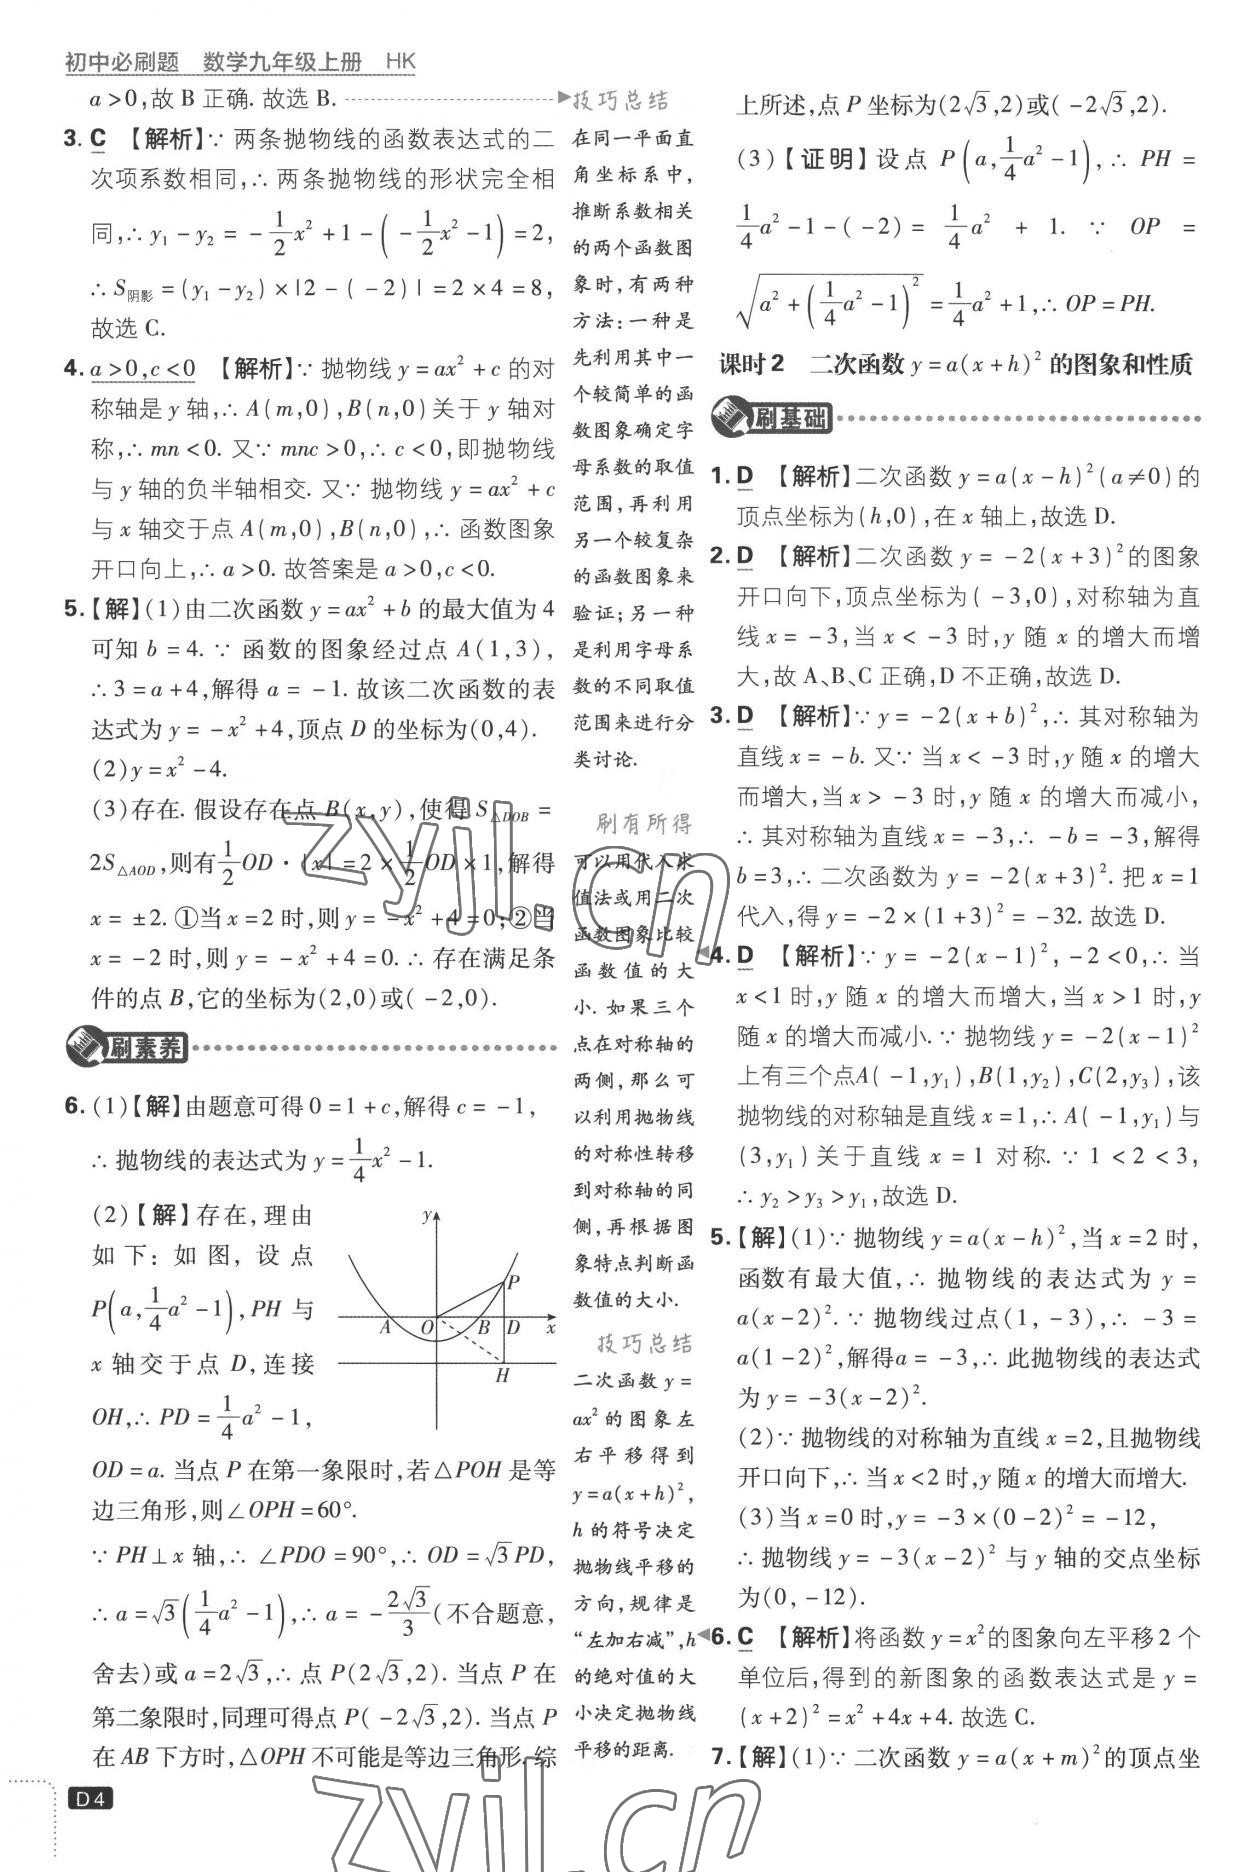 初中必刷题 数学九年级上册 HK
a>0,故 B 正确. 故选 B.
3. C 【解析】∵ 两条抛物线的函数表达式的二
次项系数相同,∴ 两条抛物线的形状完全相
同,∴ y₁-y₂ = -1/2x²+1-(-1/2x²-1)=2,
∴ S阴影=(y₁-y₂)×|2-(-2)|=2×4=8,
故选 C.
4. a>0,c<0 【解析】∵ 抛物线 y=ax²+c 的对
称轴是 y 轴,∴ A(m,0),B(n,0)关于 y 轴对
称,∴ mn<0. 又∵ mnc>0,∴ c<0,即抛物线
与 y 轴的负半轴相交. 又∵ 抛物线 y=ax²+c
与 x 轴交于点 A(m,0),B(n,0),∴ 函数图象
开口向上,∴ a>0. 故答案是 a>0,c<0.
5.【解】(1)由二次函数 y=ax²+b 的最大值为 4
可知 b=4. ∵ 函数的图象经过点 A(1,3),
∴ 3=a+4,解得 a=-1. 故该二次函数的表
达式为 y=-x²+4,顶点 D 的坐标为(0,4).
(2)y=x²-4.
(3)存在. 假设存在点 B(x,y),使得 S△DOB=
2S△AOD,则有1/2OD·|x|=2×1/2OD×1,解得
x=±2. ①当 x=2 时,则 y=-x²+4=0;②当
x=-2 时,则 y=-x²+4=0. ∴ 存在满足条
件的点 B,它的坐标为(2,0)或(-2,0).
刷素养
6. (1)【解】由题意可得 0=1+c,解得 c=-1,
∴ 抛物线的表达式为 y=1/4x²-1.
(2)【解】存在,理由
如下:如图,设点
P(a,1/4a²-1),PH 与
x 轴交于点 D,连接
OH,∴ PD=1/4a²-1,
y
P
A O B D x
H
OD=a. 当点 P 在第一象限时,若△POH 是等
边三角形,则∠OPH=60°.
∵ PH⊥x 轴,∴ ∠PDO=90°,∴ OD=√3PD,
∴ a=√3(1/4a²-1),∴ a=-2√3/3(不合题意,
舍去)或 a=2√3,∴ 点 P(2√3,2). 当点 P 在
第二象限时,同理可得点 P(-2√3,2). 当点 P
在 AB 下方时,△OPH 不可能是等边三角形. 综
D4
技巧总结
在同一平面直
角坐标系中,
推断系数相关
的两个函数图
象时,有两种
方法:一种是
先利用其中一
个较简单的函
数图象确定字
母系数的取值
范围,再利用
另一个较复杂
的函数图象来
验证;另一种
是利用字母系
数的不同取值
范围来进行分
类讨论.
刷有所得
可以用代入求
值法或用二次
函数图象比较
函数值的大
小. 如果三个
点在对称轴的
两侧,那么可
以利用抛物线
的对称性转移
到对称轴的同
侧,再根据图
象特点判断函
数值的大小.
技巧总结
二次函数 y=
ax²的图象左
右平移得到
y=a(x+h)²,
h 的符号决定
抛物线平移的
方向,规律是
“左加右减”,h
的绝对值的大
小决定抛物线
平移的距离.
上所述,点 P 坐标为(2√3,2)或(-2√3,2).
(3)【证明】设点 P(a,1/4a²-1),∴ PH =
1/4a²-1-(-2)= 1/4a² + 1. ∵ OP =
√(a²+(1/4a²-1)²)=1/4a²+1,∴ OP=PH.
课时2 二次函数 y=a(x+h)²的图象和性质
刷基础
1. D 【解析】二次函数 y=a(x-h)²(a≠0)的
顶点坐标为(h,0),在 x 轴上,故选 D.
2. D 【解析】二次函数 y=-2(x+3)²的图象
开口向下,顶点坐标为(-3,0),对称轴为直
线 x=-3,当 x<-3 时,y 随 x 的增大而增
大,故 A、B、C 正确,D 不正确,故选 D.
3. D 【解析】∵ y=-2(x+b)²,∴ 其对称轴为
直线 x=-b. 又∵ 当 x<-3 时,y 随 x 的增大
而增大,当 x>-3 时,y 随 x 的增大而减小,
∴ 其对称轴为直线 x=-3,∴ -b=-3,解得
b=3,∴ 二次函数为 y=-2(x+3)². 把 x=1
代入,得 y=-2×(1+3)²=-32. 故选 D.
4. D 【解析】∵ y=-2(x-1)²,-2<0,∴ 当
x<1 时,y 随 x 的增大而增大,当 x>1 时,y
随 x 的增大而减小. ∵ 抛物线 y=-2(x-1)²
上有三个点A(-1,y₁),B(1,y₂),C(2,y₃),该
抛物线的对称轴是直线 x=1,∴ A(-1,y₁)与
(3,y₁)关于直线 x=1 对称. ∵ 1<2<3,
∴ y₂>y₃>y₁,故选 D.
5.【解】(1)∵ 抛物线 y=a(x-h)²,当 x=2 时,
函数有最大值,∴ 抛物线的表达式为 y=
a(x-2)². ∵ 抛物线过点(1,-3),∴ -3=
a(1-2)²,解得a=-3,∴ 此抛物线的表达式
为 y=-3(x-2)².
(2)∵ 抛物线的对称轴为直线 x=2,且抛物线
开口向下,∴ 当 x<2 时,y 随 x 的增大而增大.
(3)当 x=0 时,y=-3×(0-2)²=-12,
∴ 抛物线 y=-3(x-2)²与 y 轴的交点坐标
为(0,-12).
6. C 【解析】将函数 y=x²的图象向左平移 2 个
单位后,得到的新图象的函数表达式是 y=
(x+2)²=x²+4x+4. 故选 C.
7.【解】(1)∵ 二次函数 y=a(x+m)²的顶点坐
zyjl.cn
zyjl.cn